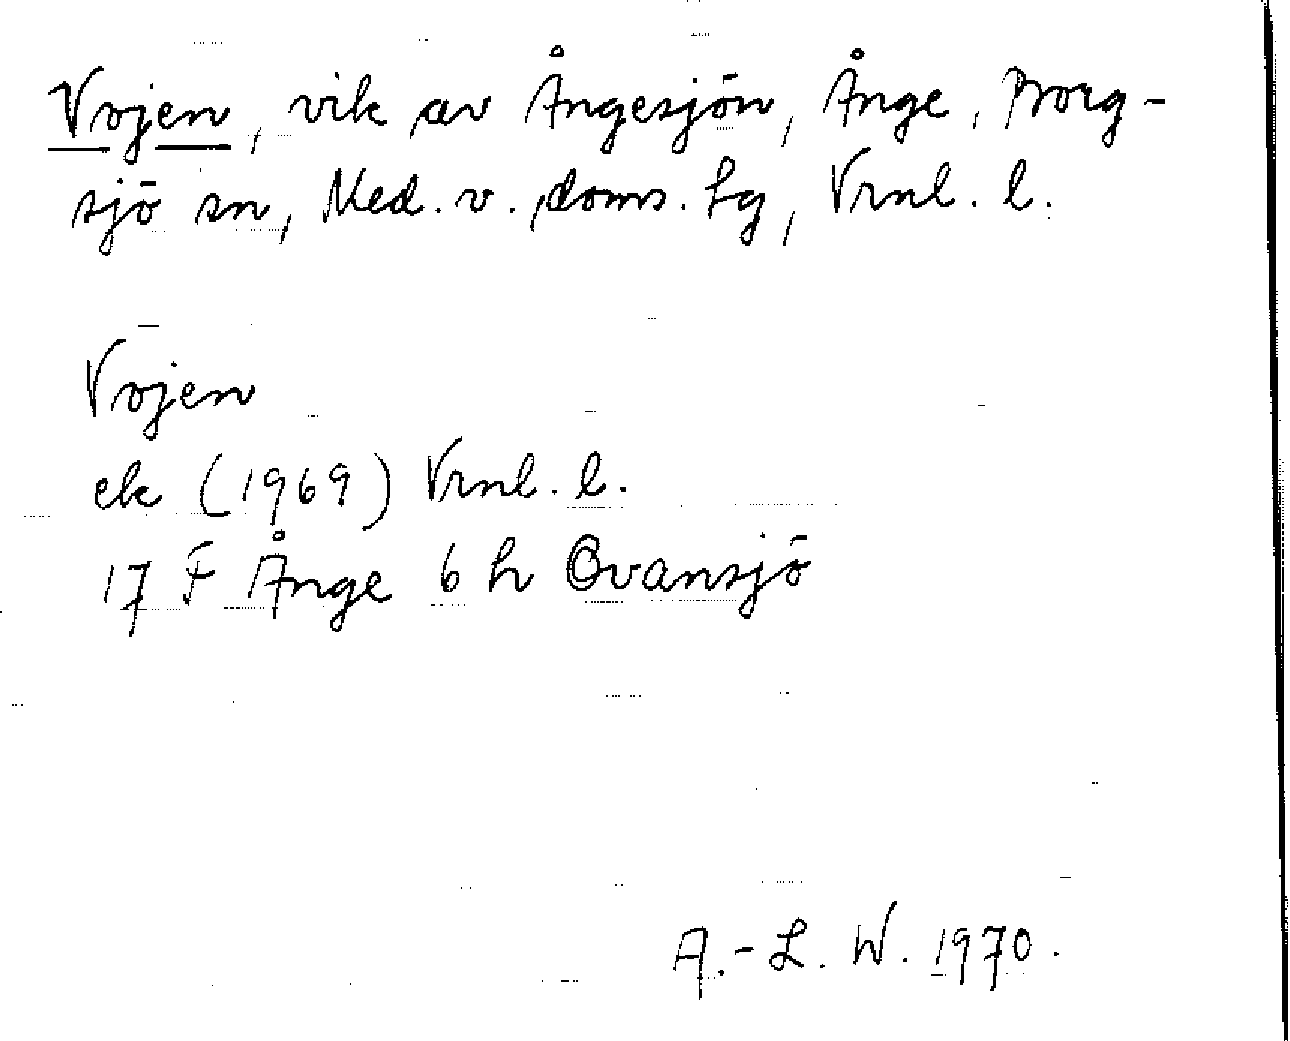 Vojen, vik av Ångesjön, Ånge, Borg-
sjö sn, Med. v. doms. hg, Vrnl. l.
Vojen
ek (1969) Vrnl. l.
17 F Ånge 6 h Ovansjö
A.-L. W. 1970.